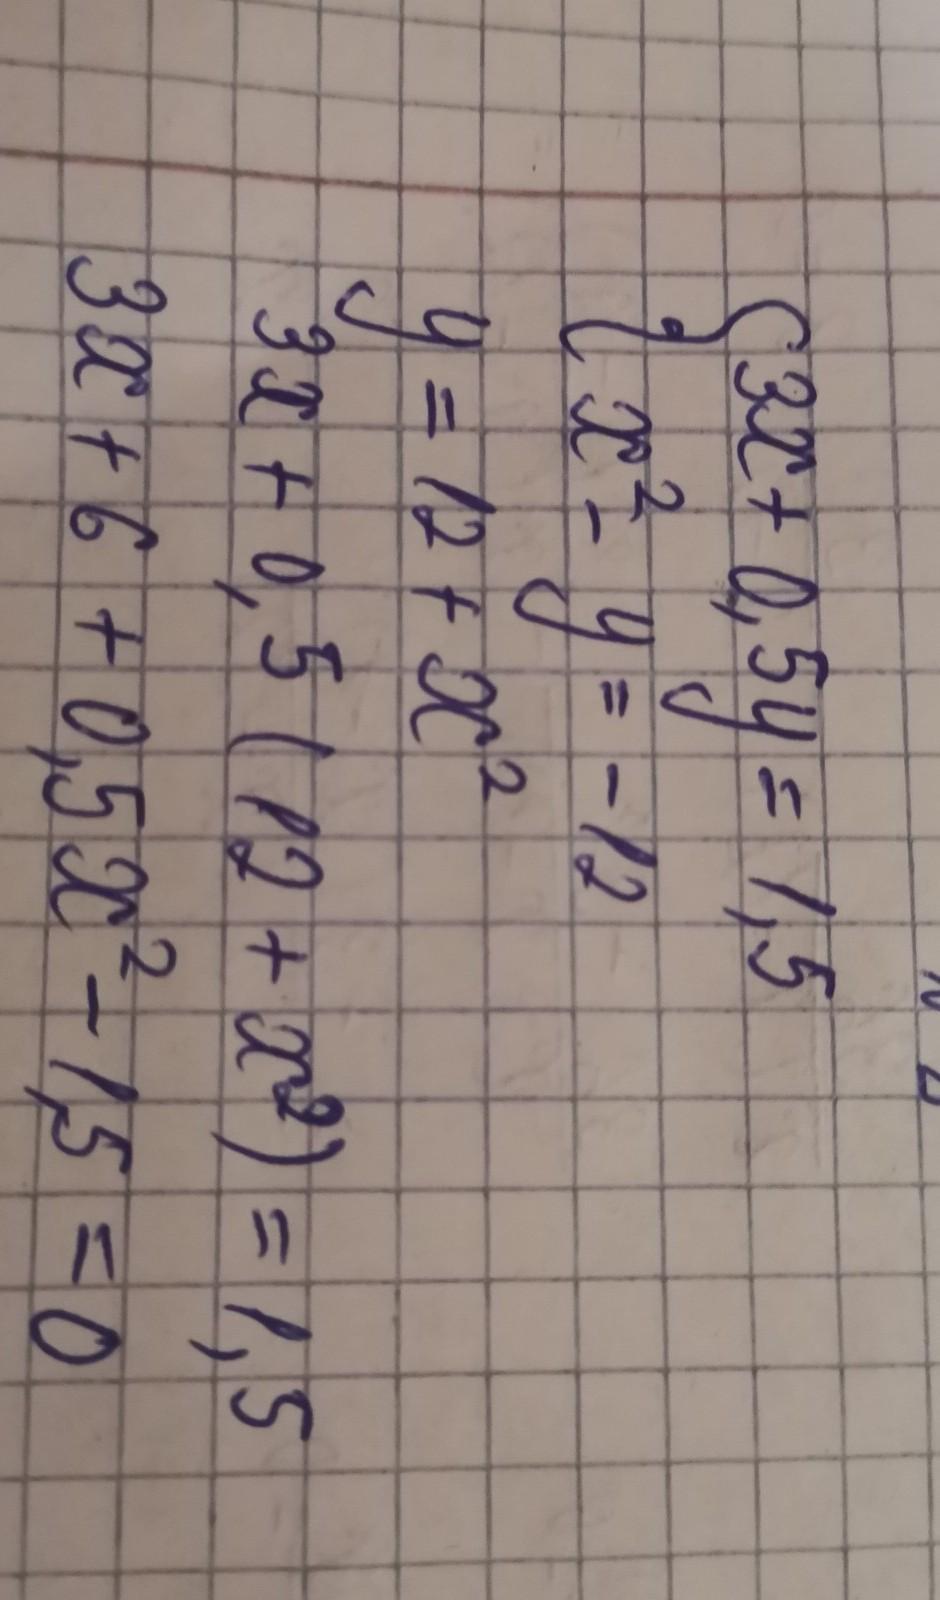 {3x + 0,5y = 1,5
{x² - y = -12
y = 12 + x²
3x + 0,5(12 + x²) = 1,5
3x + 6 + 0,5x² - 1,5 = 0